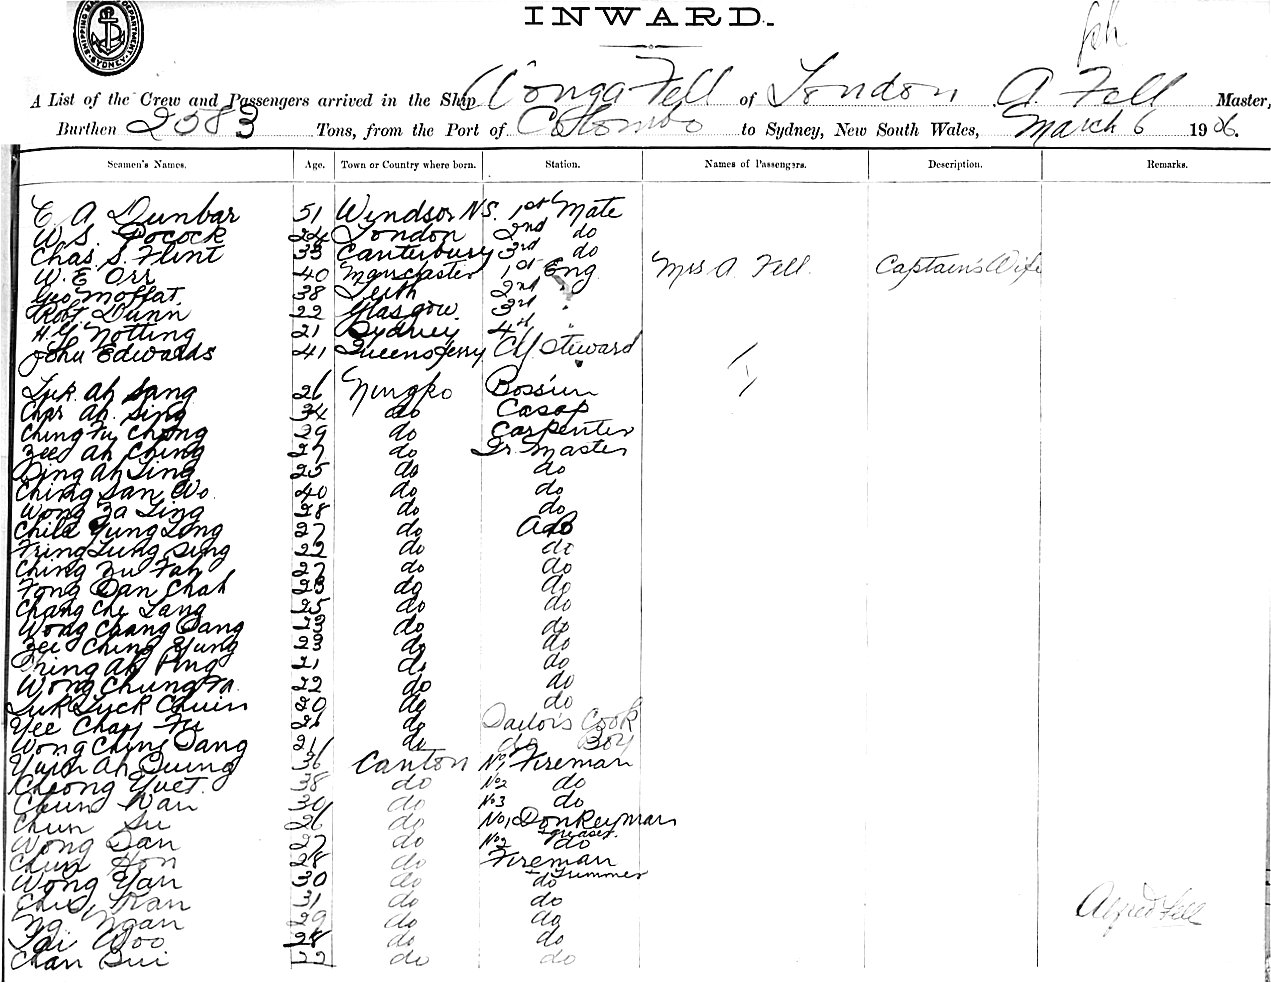 SHIPPING MASTER'S DEPARTMENT SYDNEY
INWARD.
A List of the Crew and Passengers arrived in the Ship Wonga Fell of London A. Fell Master,
Burthen 2583 Tons, from the Port of Colombo to Sydney, New South Wales, March 6 1906.
Seamen's Names. Age. Town or Country where born. Station. Names of Passengers. Description. Remarks.
C A Dunbar 51 Windsor N.S. 1st Mate
W. S. Pocock 24 London 2nd do
Chas. S. Flint 33 Canterbury 3rd do
W. E. Orr 40 Manchester 1st Eng. Mrs A. Fell. Captain's Wife
Geo Moffat 38 Leith 2nd
Robt. Dunn 22 Glasgow 3rd "
H. G. Notting 21 Sydney 4th "
John Edwards 41 Queensferry Ch Steward
Luk Ah Sang 26 Ningpo Boss'un
Char Ah Sing 34 do Casap
Ching Fu Chong 29 do Carpenter
Zee Ah Ching 27 do Qr Master
Ding Ah Ling 25 do do
Ching San Wo 40 do do
Wong Za Ling 28 do do
Chila Yung Long 27 do AB
Tring Lung Sing 22 do do
Ching Nu Fah 27 do do
Fong Dan Chah 23 do do
Chang Che Lang 25 do do
Wong Chang Dang 23 do do
Zee Ching Yung 23 do do
Ching Ah Ping 21 do do
Wong Chung Fa 22 do do
Luk Luck Chuin 20 do do
Yee Chay Fu 26 do Sailor's Cook
Wong Ching Dang 21 do do Boy
Yuin Ah Guing 36 Canton No 1 Fireman
Cheong Yuet. 38 do No 2 do
Chun Wan 30 do No 3 do
Chun Su 26 do No 1 Donkeyman
Wong San 27 do No 2 do greaser.
Chun Hon 28 do Fireman
Wong Yan 30 do do Trimmer
Chu Kan 31 do do
Ng Ngan 29 do do Alfred Fell
Tai Woo 28 do do
Chan Gui 22 do do